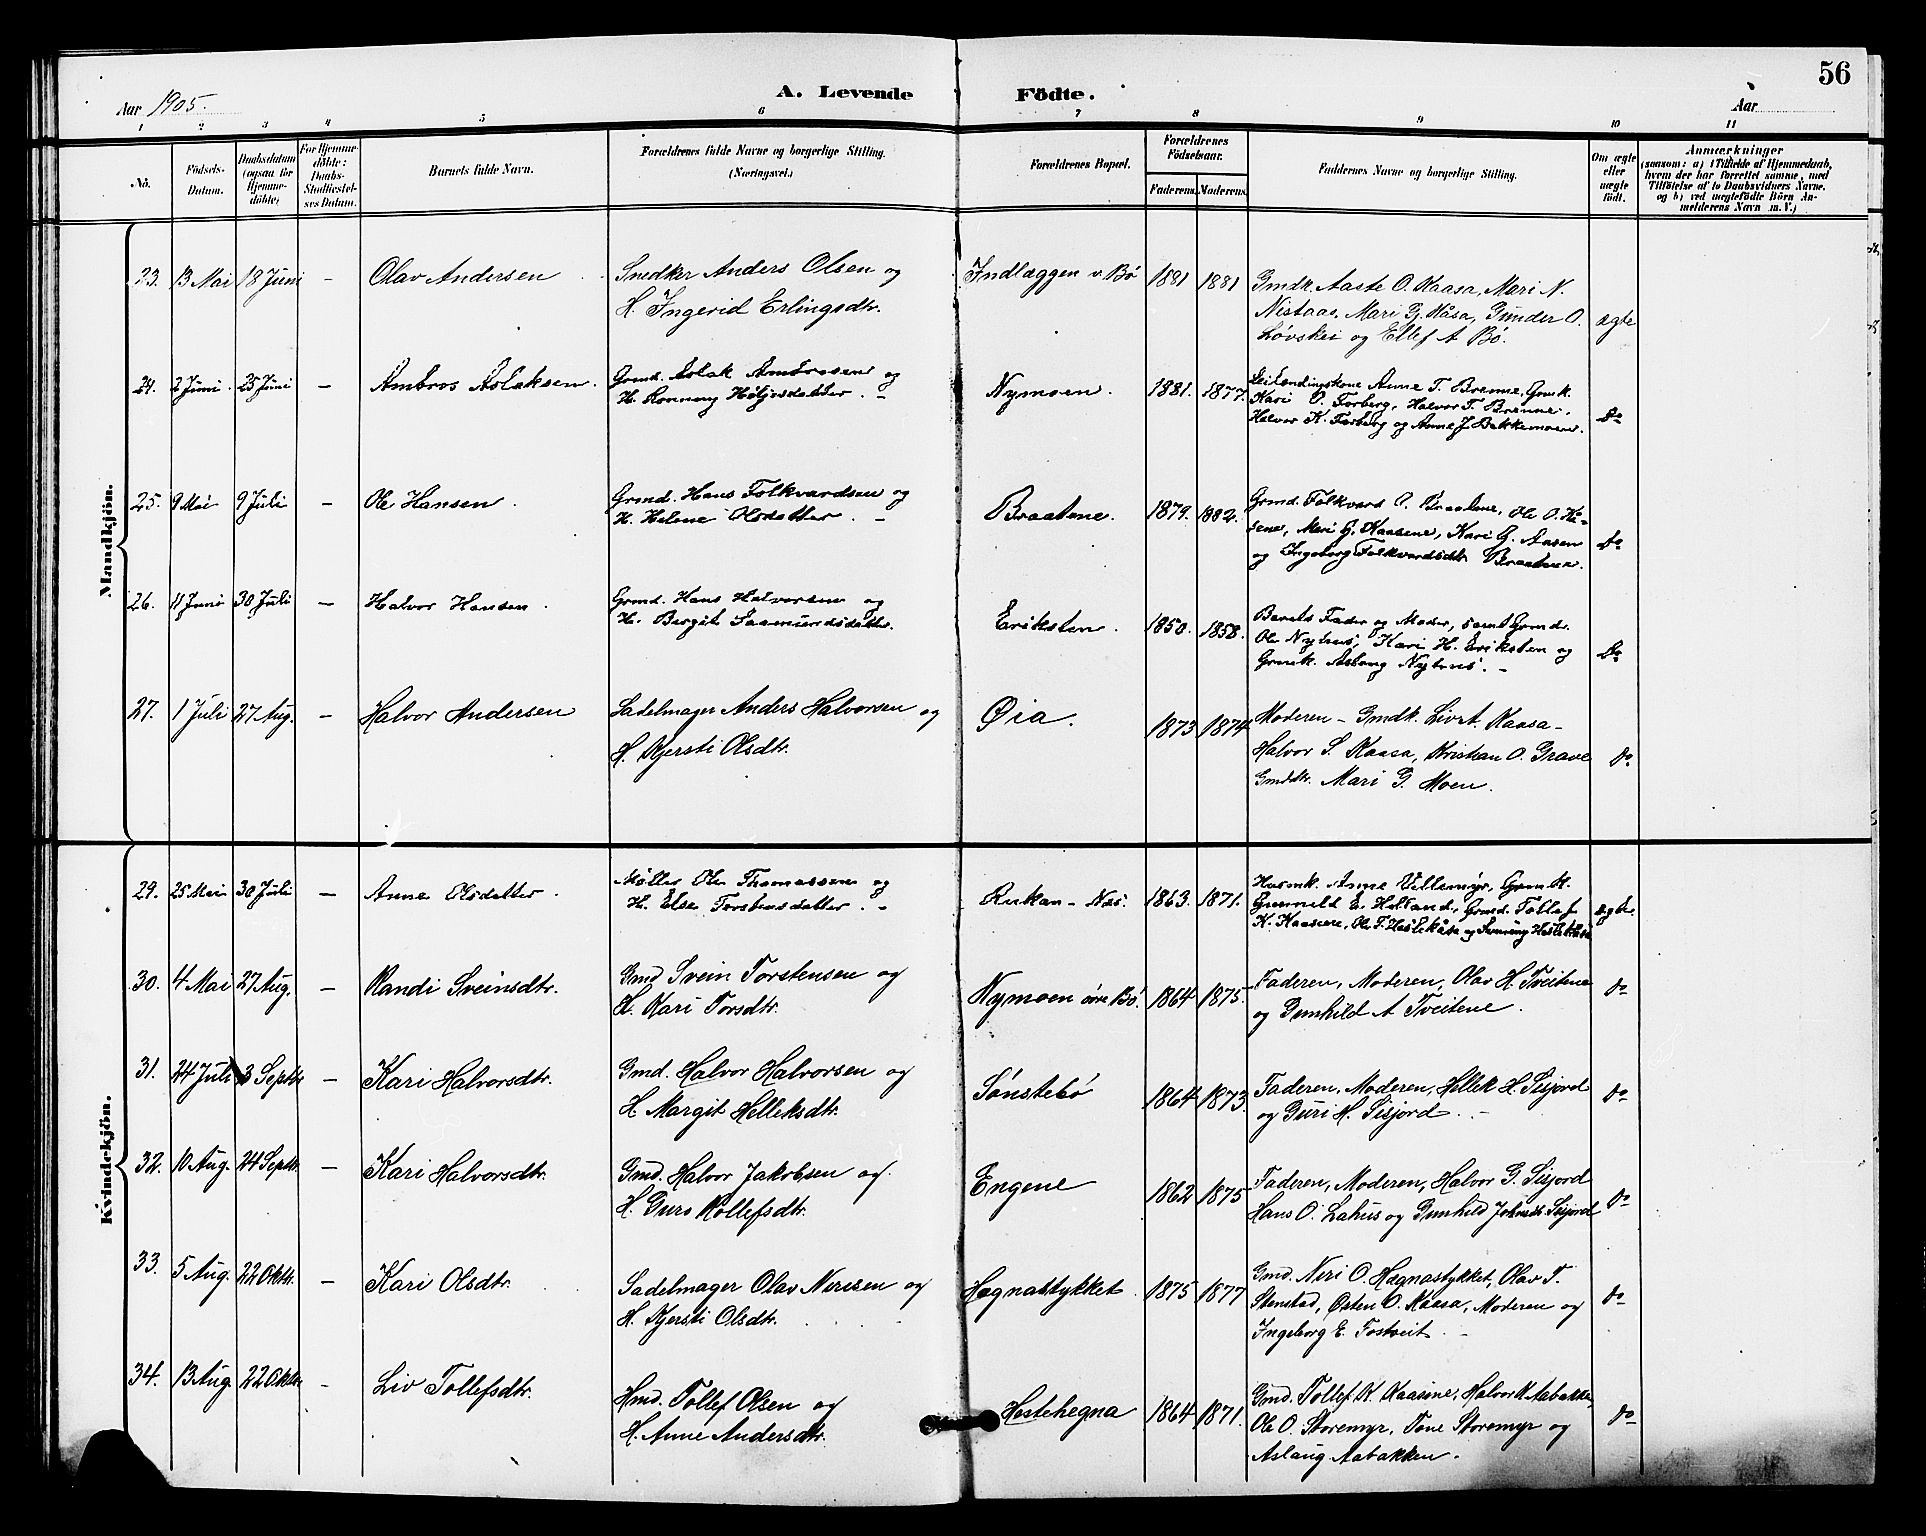 56
Aar 1905.
A. Levende Födte.
Aar
1 2 3 4 5 6 7 8 9 10 11
No.
Födsels-
Datum.
Daabsdatum
(ogsaa for
Hjemme-
döbte)
For Hjemme-
döbte:
Daabs-
Stadfæstel-
ses Datum.
Barnets fulde Navn.
Forældrenes fulde Navne og borgerlige Stilling.
(Næringsvei.)
Forældrenes Bopæl.
Forældrenes
Födselsaar.
Faderens. Moderens.
Faddernes Navne og borgerlige Stilling.
Om ægte
eller
uægte
födt.
Anmærkninger
(saasom: a) i Tilfælde af Hjemmedaab,
hvem der har forrettet samme, med
Tilföielse af to Daabsvidners Navne,
og b) ved uægtefödte Börn An-
melderens Navn m. V.)
Mandkjön.
23. 13 Mai 18 Juni - Olav Andersen
Snedker Anders Olsen og
H. Ingerid Erlingsdtr.
Indlæggen v. Bø 1881 1881
Gmdk. Aaste O. Kaasa, Mari N.
Nistaas, Mari G. Kåsa, Gunder O.
Løvskei og Ellef A Bø.
ægte
24. 2 Juni. 25 Juni - Ambros Aslaksen.
Grmd. Aslak Ambrosen og
H. Rønnoug Høljesdatter. -
Nymoen. 1881. 1877.
Leilendingskone Anne T. Brenne, Grmk.
Kari O. Forberg, Halvor T. Brenne,
Halvor K. Forberg og Anne J. Bakkemoen.
do
25. 9 Mai 9 Juli - Ole Hansen.
Grmd. Hans Folkvardsen og
H. Helene Olsdatter. -
Braatene. 1879. 1882.
Grmd. Folkvard O. Braatene, Ole O. Kå-
sene, Mari G. Kaasene, Kari G. Aasen
og Ingeborg Folkvardsdtr. Braatene.
do
26. 11 Juni 30 Juli - Halvor Hansen.
Grmd. Hans Halvorsen og
H. Bergit Saamundsdatter.
Eriksten. 1850. 1858.
Barnets Fader og Moder, samt Grmd.
Ole Nyhus, Kari H. Eriksten og
Grmk. Aslaug Nyhus. -
do
27. 1 Juli 27 Aug. - Halvor Andersen
Sadelmager Anders Halvorsen og
H. Kjersti Olsdtr.
Øia. 1873 1874
Moderen - Gmdk. Liv T. Kaasa -
Halvor S. Kaasa, Kristian O. Grave
Gmddtr. Mari G. Moen.
do
Kvindekjön.
29. 25 Mai 30 Juli - Anne Olsdatter.
Møller Ole Thomassen og
H. Else Torstensdatter. -
Rukan - Nes. 1863. 1871.
Husmk. Anne Villemyr, Grmk.
Gunnild E. Heland, Grmd. Tollef
K. Kaasene, Ole T. Haslekåsa og
ægte.
30. 4 Mai 27 Aug. - Randi Sveinsdtr.
Gmd Svein Torstensen og
H. Kari Torsdtr.
Nymoen øvre Bø. 1864 1875.
Faderen, Moderen, Olav H. Tveitene
og Gunhild A Tveitene.
do
31. 24 Juli 3 Septbr. - Kari Halvorsdtr.
Gmd. Halvor Halvorsen og
H. Margit Helleksdtr.
Sønstebø 1864 1873.
Faderen, Moderen, Hellek H. Sisjord
og Guri H. Sisjord. -
do
32. 10 Aug. 24 Septbr. - Kari Halvorsdtr.
Gmd. Halvor Jakobsen og
H. Guro Rollefsdtr.
Engene 1862 1875
Faderen, Moderen, Halvor G. Sisjord
Hans O. Lahus og Gunhild Sisjord
do
33. 5 Aug. 22 Oktbr. - Kari Olsdtr.
Sadelmager Olav Nerisen og
H. Kjersti Olsdtr.
Hægnastykket. 1875 1877
Gmd. Neri O. Hægnastykket, Olav T.
Stenstad, Østen O. Kaasa, Moderen og
Ingeborg E. Fostveit. -
do
34. 13 Aug. 22 Oktbr. - Liv Tollefsdtr.
Hmd. Tollef Olsen og
H. Anne Andersdtr.
Hestehegna 1864 1871.
Gmd. Tollef K. Kaasine, Halvor K. Aabakken,
Ole O. Storemyr, Tone Storemyr og
Aslaug Aabakken.
do